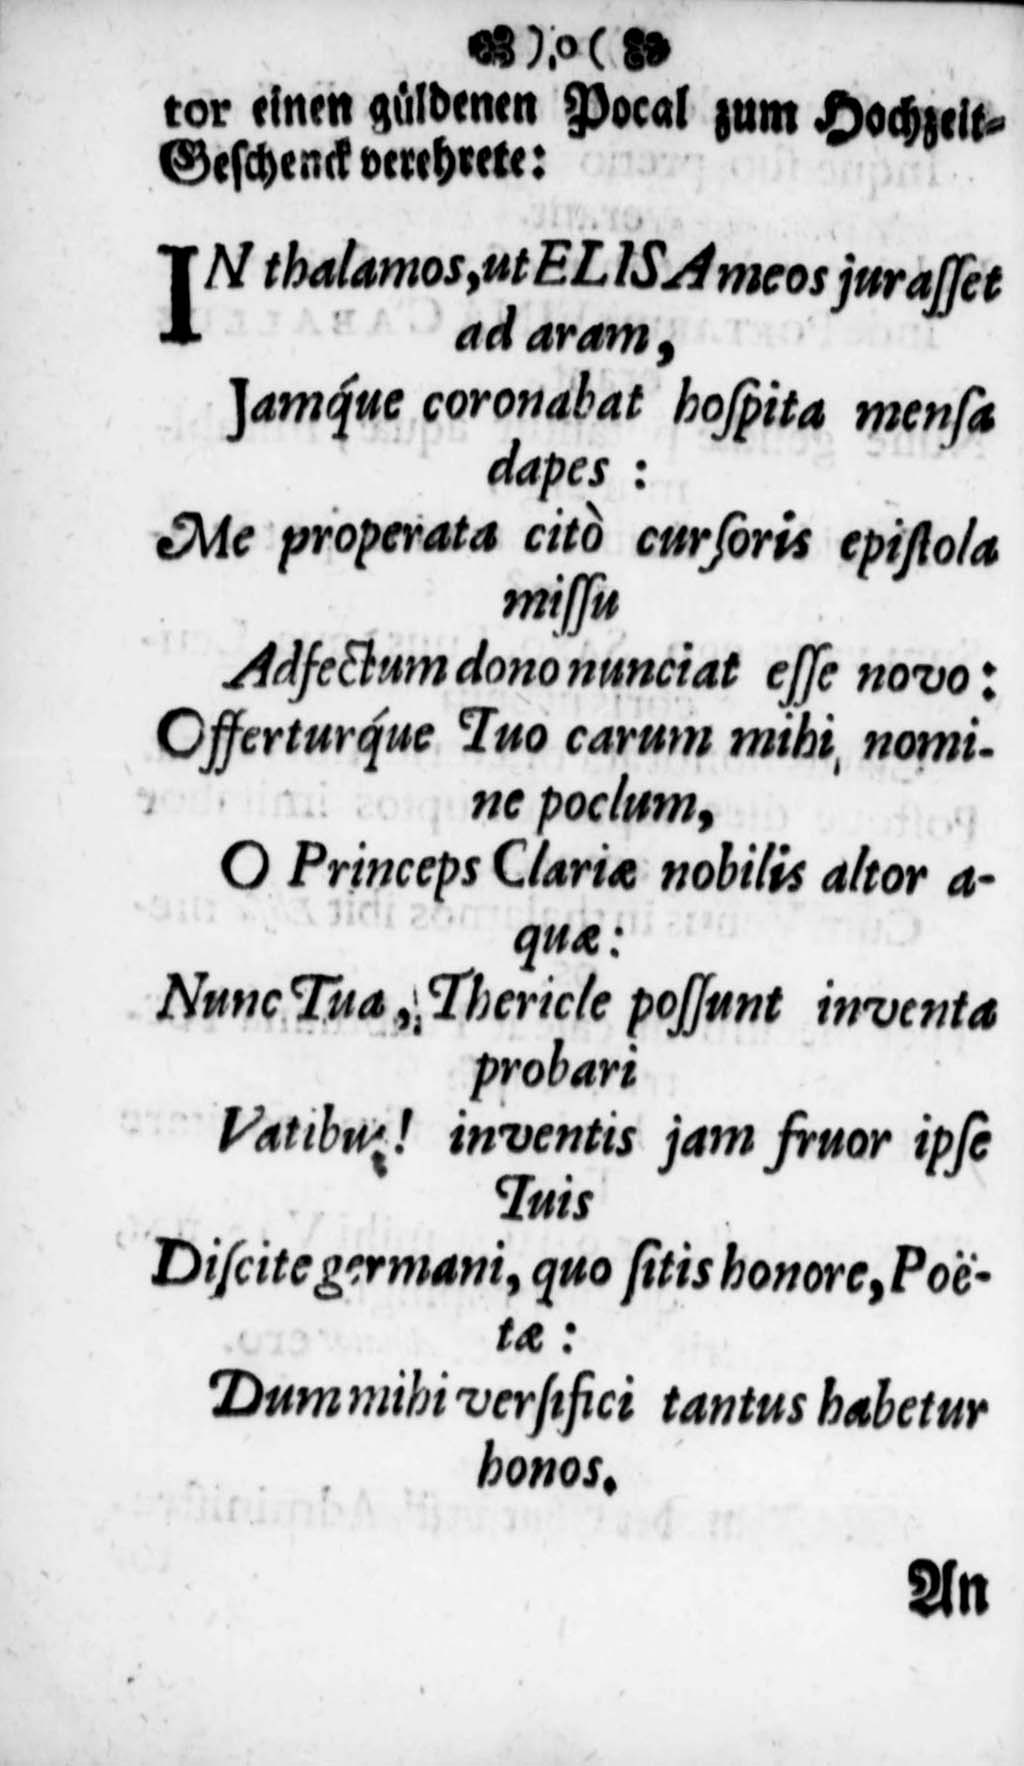 ):o(
tor einen güldenen Pocal zum Hochzeit-
Geſchenck verehrete:
IN thalamos, ut ELISA meos juraſſet
ad aram,
Jamq́ue coronabat hoſpita menſa
dapes :
Me properata citò curſoris epiſtola
miſſu
Adfectum dono nunciat eſſe novo:
Offerturq́ue Tuo carum mihi, nomi-
ne poclum,
O Princeps Clariæ nobilis altor a-
quæ:
Nunc Tua, Thericle poſſunt inventa
probari
Vatibus! inventis jam fruor ipſe
Tuis
Diſcite germani, quo ſitis honore, Poë-
tæ :
Dum mihi verſifici tantus habetur
honos.
An